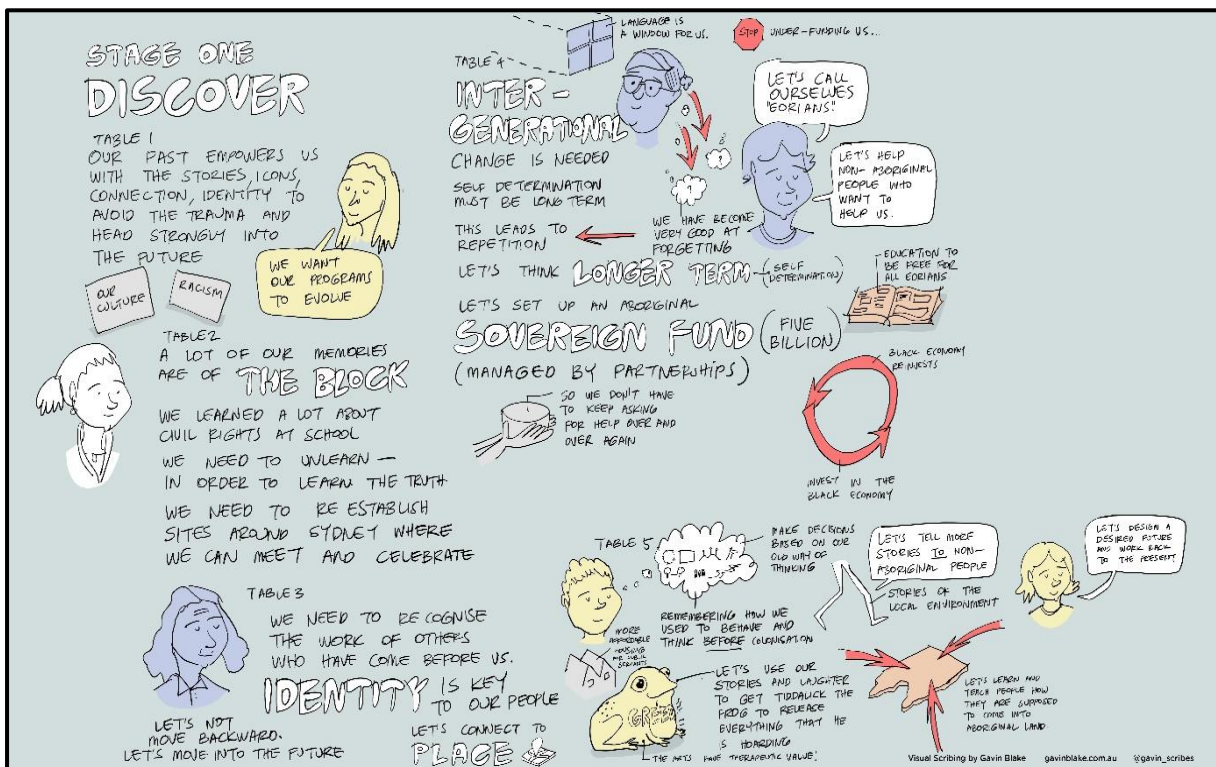 STAGE ONE
DISCOVER
TABLE 1
OUR PAST EMPOWERS US
WITH THE STORIES, ICONS,
CONNECTION, IDENTITY TO
AVOID THE TRAUMA AND
HEAD STRONGLY INTO
THE FUTURE
WE WANT
OUR PROGRAMS
TO EVOLVE
OUR
CULTURE
RACISM
TABLE 2
A LOT OF OUR MEMORIES
ARE OF THE BLOCK
WE LEARNED A LOT ABOUT
CIVIL RIGHTS AT SCHOOL
WE NEED TO UNLEARN —
IN ORDER TO LEARN THE TRUTH
WE NEED TO RE ESTABLISH
SITES AROUND SYDNEY WHERE
WE CAN MEET AND CELEBRATE
TABLE 3
WE NEED TO RECOGNISE
THE WORK OF OTHERS
WHO HAVE COME BEFORE US.
IDENTITY IS KEY
TO OUR PEOPLE
LET'S NOT
MOVE BACKWARD.
LET'S MOVE INTO THE FUTURE
LET'S CONNECT TO
PLACE
LANGUAGE IS
A WINDOW FOR US.
STOP UNDER-FUNDING US...
TABLE 4
INTER-
GENERATIONAL
CHANGE IS NEEDED
SELF DETERMINATION
MUST BE LONG TERM
THIS LEADS TO
REPETITION
WE HAVE BECOME
VERY GOOD AT
FORGETTING
? ?
LET'S CALL
OURSELVES
"EORIANS."
LET'S HELP
NON-ABORIGINAL
PEOPLE WHO
WANT TO
HELP US.
LET'S THINK LONGER TERM — (SELF
DETERMINATION)
EDUCATION TO
BE FREE FOR
ALL EORIANS
LET'S SET UP AN ABORIGINAL
SOVEREIGN FUND (FIVE
BILLION)
(MANAGED BY PARTNERSHIPS)
SO WE DON'T HAVE
TO KEEP ASKING
FOR HELP OVER AND
OVER AGAIN
BLACK ECONOMY
REINVESTS
INVEST IN THE
BLACK ECONOMY
TABLE 5
MAKE DECISIONS
BASED ON OUR
OLD WAY OF
THINKING
REMEMBERING HOW WE
USED TO BEHAVE AND
THINK BEFORE COLONISATION
MORE
AFFORDABLE
HOUSING
FOR PUBLIC
SERVANTS
LET'S TELL MORE
STORIES TO NON-
ABORIGINAL PEOPLE
STORIES OF THE
LOCAL ENVIRONMENT
LET'S DESIGN A
DESIRED FUTURE
AND WORK BACK
TO THE PRESENT!
GREED
LET'S USE OUR
STORIES AND LAUGHTER
TO GET TIDDALICK THE
FROG TO RELEASE
EVERYTHING THAT HE
IS HOARDING
THE ARTS HAVE THERAPEUTIC VALUE!
LET'S LEARN AND
TEACH PEOPLE HOW
THEY ARE SUPPOSED
TO COME INTO
ABORIGINAL LAND
Visual Scribing by Gavin Blake gavinblake.com.au @gavin_scribes